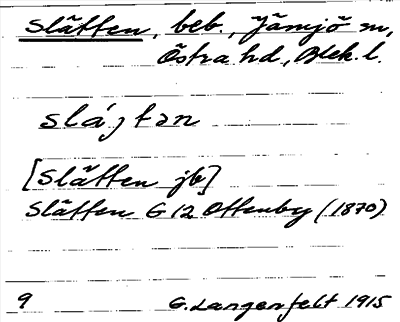 Slätten, beb., Jämjö sn,
Östra hd, Blek. l.
slájtən
[Slätten jb]
Slätten G 12 Ottenby (1870)
9 G. Langenfelt 1915